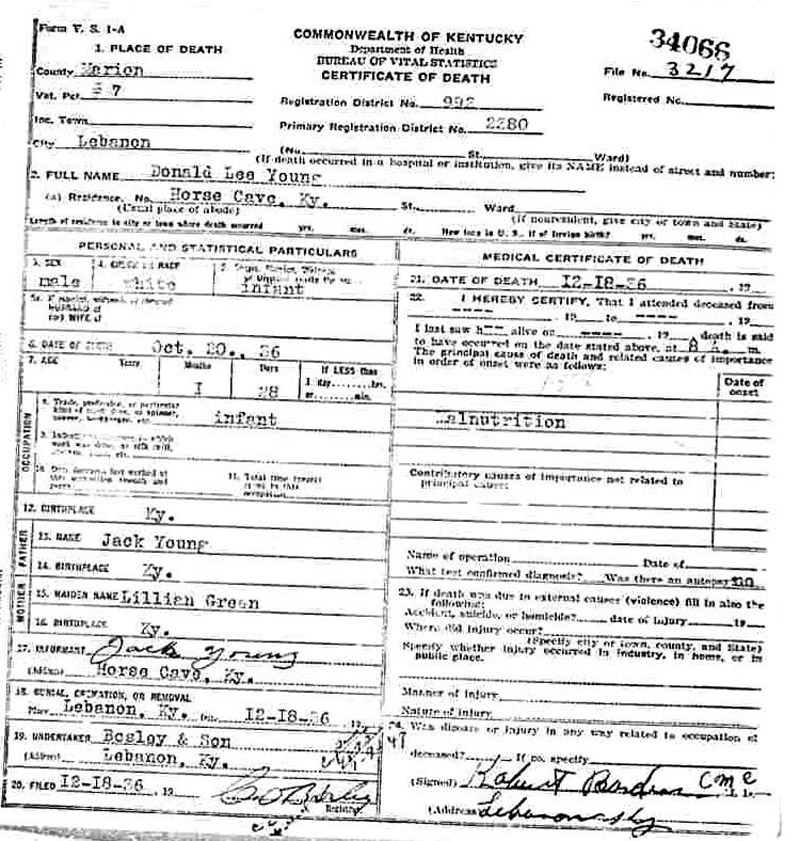 Form V. S. 1-A
COMMONWEALTH OF KENTUCKY
Department of Health
BUREAU OF VITAL STATISTICS
CERTIFICATE OF DEATH
34066
File No. 3217
Registered No.
1. PLACE OF DEATH
County Marion
Vot. Pct. # 7
Inc. Town
City Lebanon
Registration District No. 992
Primary Registration District No. 2380
(No. St. Ward)
(If death occurred in a hospital or institution, give its NAME instead of street and number)
2. FULL NAME Donald Lee Young
(a) Residence. No. Horse Cave, Ky. St. Ward
(Usual place of abode) (If nonresident, give city or town and State)
Length of residence in city or town where death occurred yrs. mos. ds. How long in U. S., if of foreign birth? yrs. mos. ds.
PERSONAL AND STATISTICAL PARTICULARS
3. SEX male
4. COLOR OR RACE white
infant
6. DATE OF BIRTH Oct. 20., 36
7. AGE Years Months Days If LESS than
1 28 1 day hrs.
or min.
OCCUPATION
8. Trade, profession, or particular
infant
11. Total time (years)
12. BIRTHPLACE Ky.
FATHER
13. NAME Jack Young
14. BIRTHPLACE Ky.
MOTHER
15. MAIDEN NAME Lillian Green
16. BIRTHPLACE Ky.
17. INFORMANT Jack Young
(Address) Horse Cave, Ky.
18. BURIAL, CREMATION, OR REMOVAL
Place Lebanon, Ky. Date 12-18-36, 19
19. UNDERTAKER Bosley & Son
(Address) Lebanon, Ky.
20. FILED 12-18-36, 19
Registrar
MEDICAL CERTIFICATE OF DEATH
21. DATE OF DEATH 12-18-36, 19
22. I HEREBY CERTIFY, That I attended deceased from
----, 19 to ----, 19
I last saw h-- alive on ----, 19 death is said
to have occurred on the date stated above, at 8 A. m.
The principal cause of death and related causes of importance
in order of onset were as follows:
Date of
onset
Malnutrition
Contributory causes of importance not related to
principal cause:
Name of operation Date of
What test confirmed diagnosis? Was there an autopsy no
23. If death was due to external causes (violence) fill in also the
following:
Accident, suicide, or homicide? date of injury 19
Where did injury occur?
(Specify city or town, county, and State)
Specify whether injury occurred in industry, in home, or in
public place.
Manner of injury
Nature of injury
24. Was disease or injury in any way related to occupation of
deceased? If so, specify
(Signed) Robert
(Address)